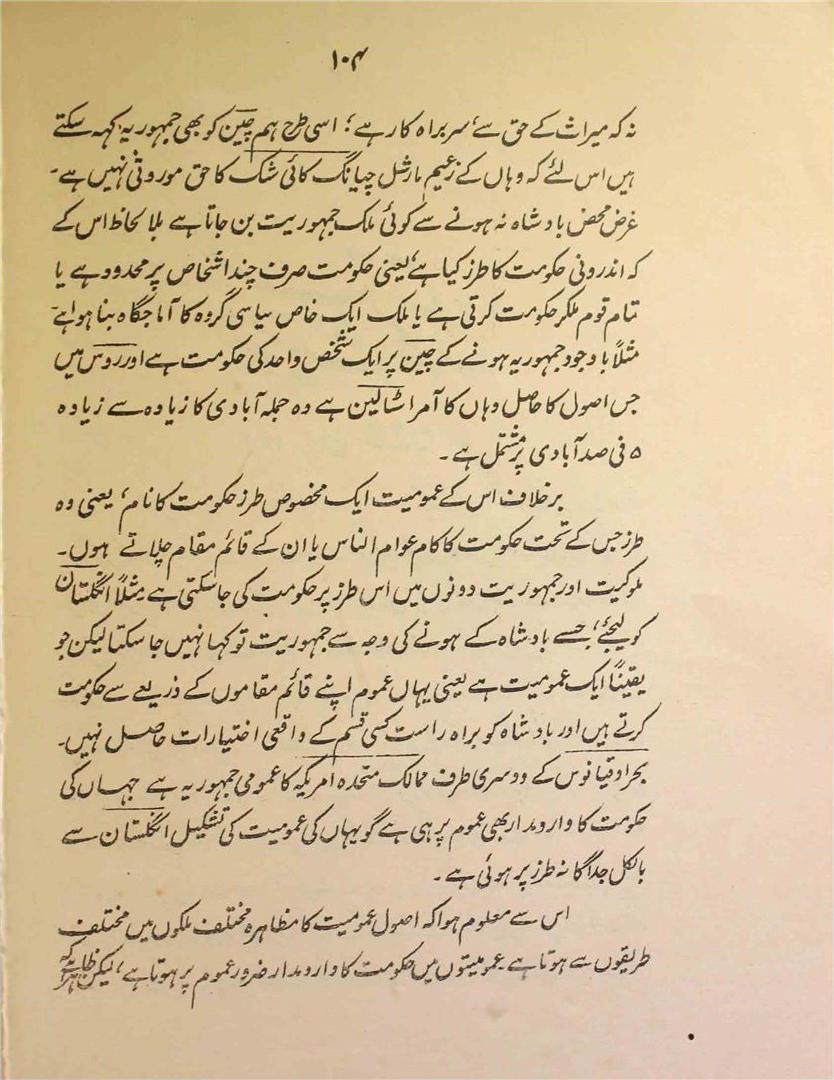 ۱۰۴
نہ کہ میراث کے حق سے، سربراہ کار ہے؛ اسی طرح ہم چین کو بھی جمہوریہ کہہ سکتے
ہیں اس لئے کہ وہاں کے زعیم مارشل چیانگ کائی شک کا حق موروثی نہیں ہے۔
غرض محض بادشاہ نہ ہونے سے کوئی ملک جمہوریت بن جاتا ہے بلا لحاظ اس کے
کہ اندرونی حکومت کا طرز کیا ہے، یعنی حکومت صرف چند اشخاص پر محدود ہے یا
تمام قوم ملکر حکومت کرتی ہے یا ملک ایک خاص سیاسی گروہ کا آماجگاہ بنا ہوا ہے
مثلاً باوجود جمہوریہ ہونے کے چین پر ایک شخص واحد کی حکومت ہے اور روس میں
جس اصول کا حاصل وہاں کا آمر اسٹالین ہے وہ جملہ آبادی کا زیادہ سے زیادہ
۵ فی صد آبادی پر مشتمل ہے۔
برخلاف اس کے عمومیت ایک مخصوص طرز حکومت کا نام، یعنی وہ
طرز جس کے تحت حکومت کا کام عوام الناس یا ان کے قائم مقام چلاتے ہوں۔
ملوکیت اور جمہوریت دونوں میں اس طرز پر حکومت کی جا سکتی ہے مثلاً انگلستان
کو لیجئے، جسے بادشاہ کے ہونے کی وجہ سے جمہوریت تو کہا نہیں جا سکتا لیکن جو
یقیناً ایک عمومیت ہے یعنی یہاں عموم اپنے قائم مقاموں کے ذریعے سے حکومت
کرتے ہیں اور بادشاہ کو براہ راست کسی قسم کے واقعی اختیارات حاصل نہیں۔
بحر اوقیانوس کے دوسری طرف ممالک متحدہ امریکہ کا عمومی جمہوریہ ہے جہاں کی
حکومت کا دارومدار بھی عموم پر ہی ہے گو یہاں کی عمومیت کی تشکیل انگلستان سے
بالکل جداگانہ طرز پر ہوئی ہے۔
اس سے معلوم ہوا کہ اصول عمومیت کا مظاہرہ مختلف ملکوں میں مختلف
طریقوں سے ہوتا ہے عمومیتوں میں حکومت کا دارومدار ضرور عموم پر ہوتا ہے، لیکن ظاہر ہے کہ